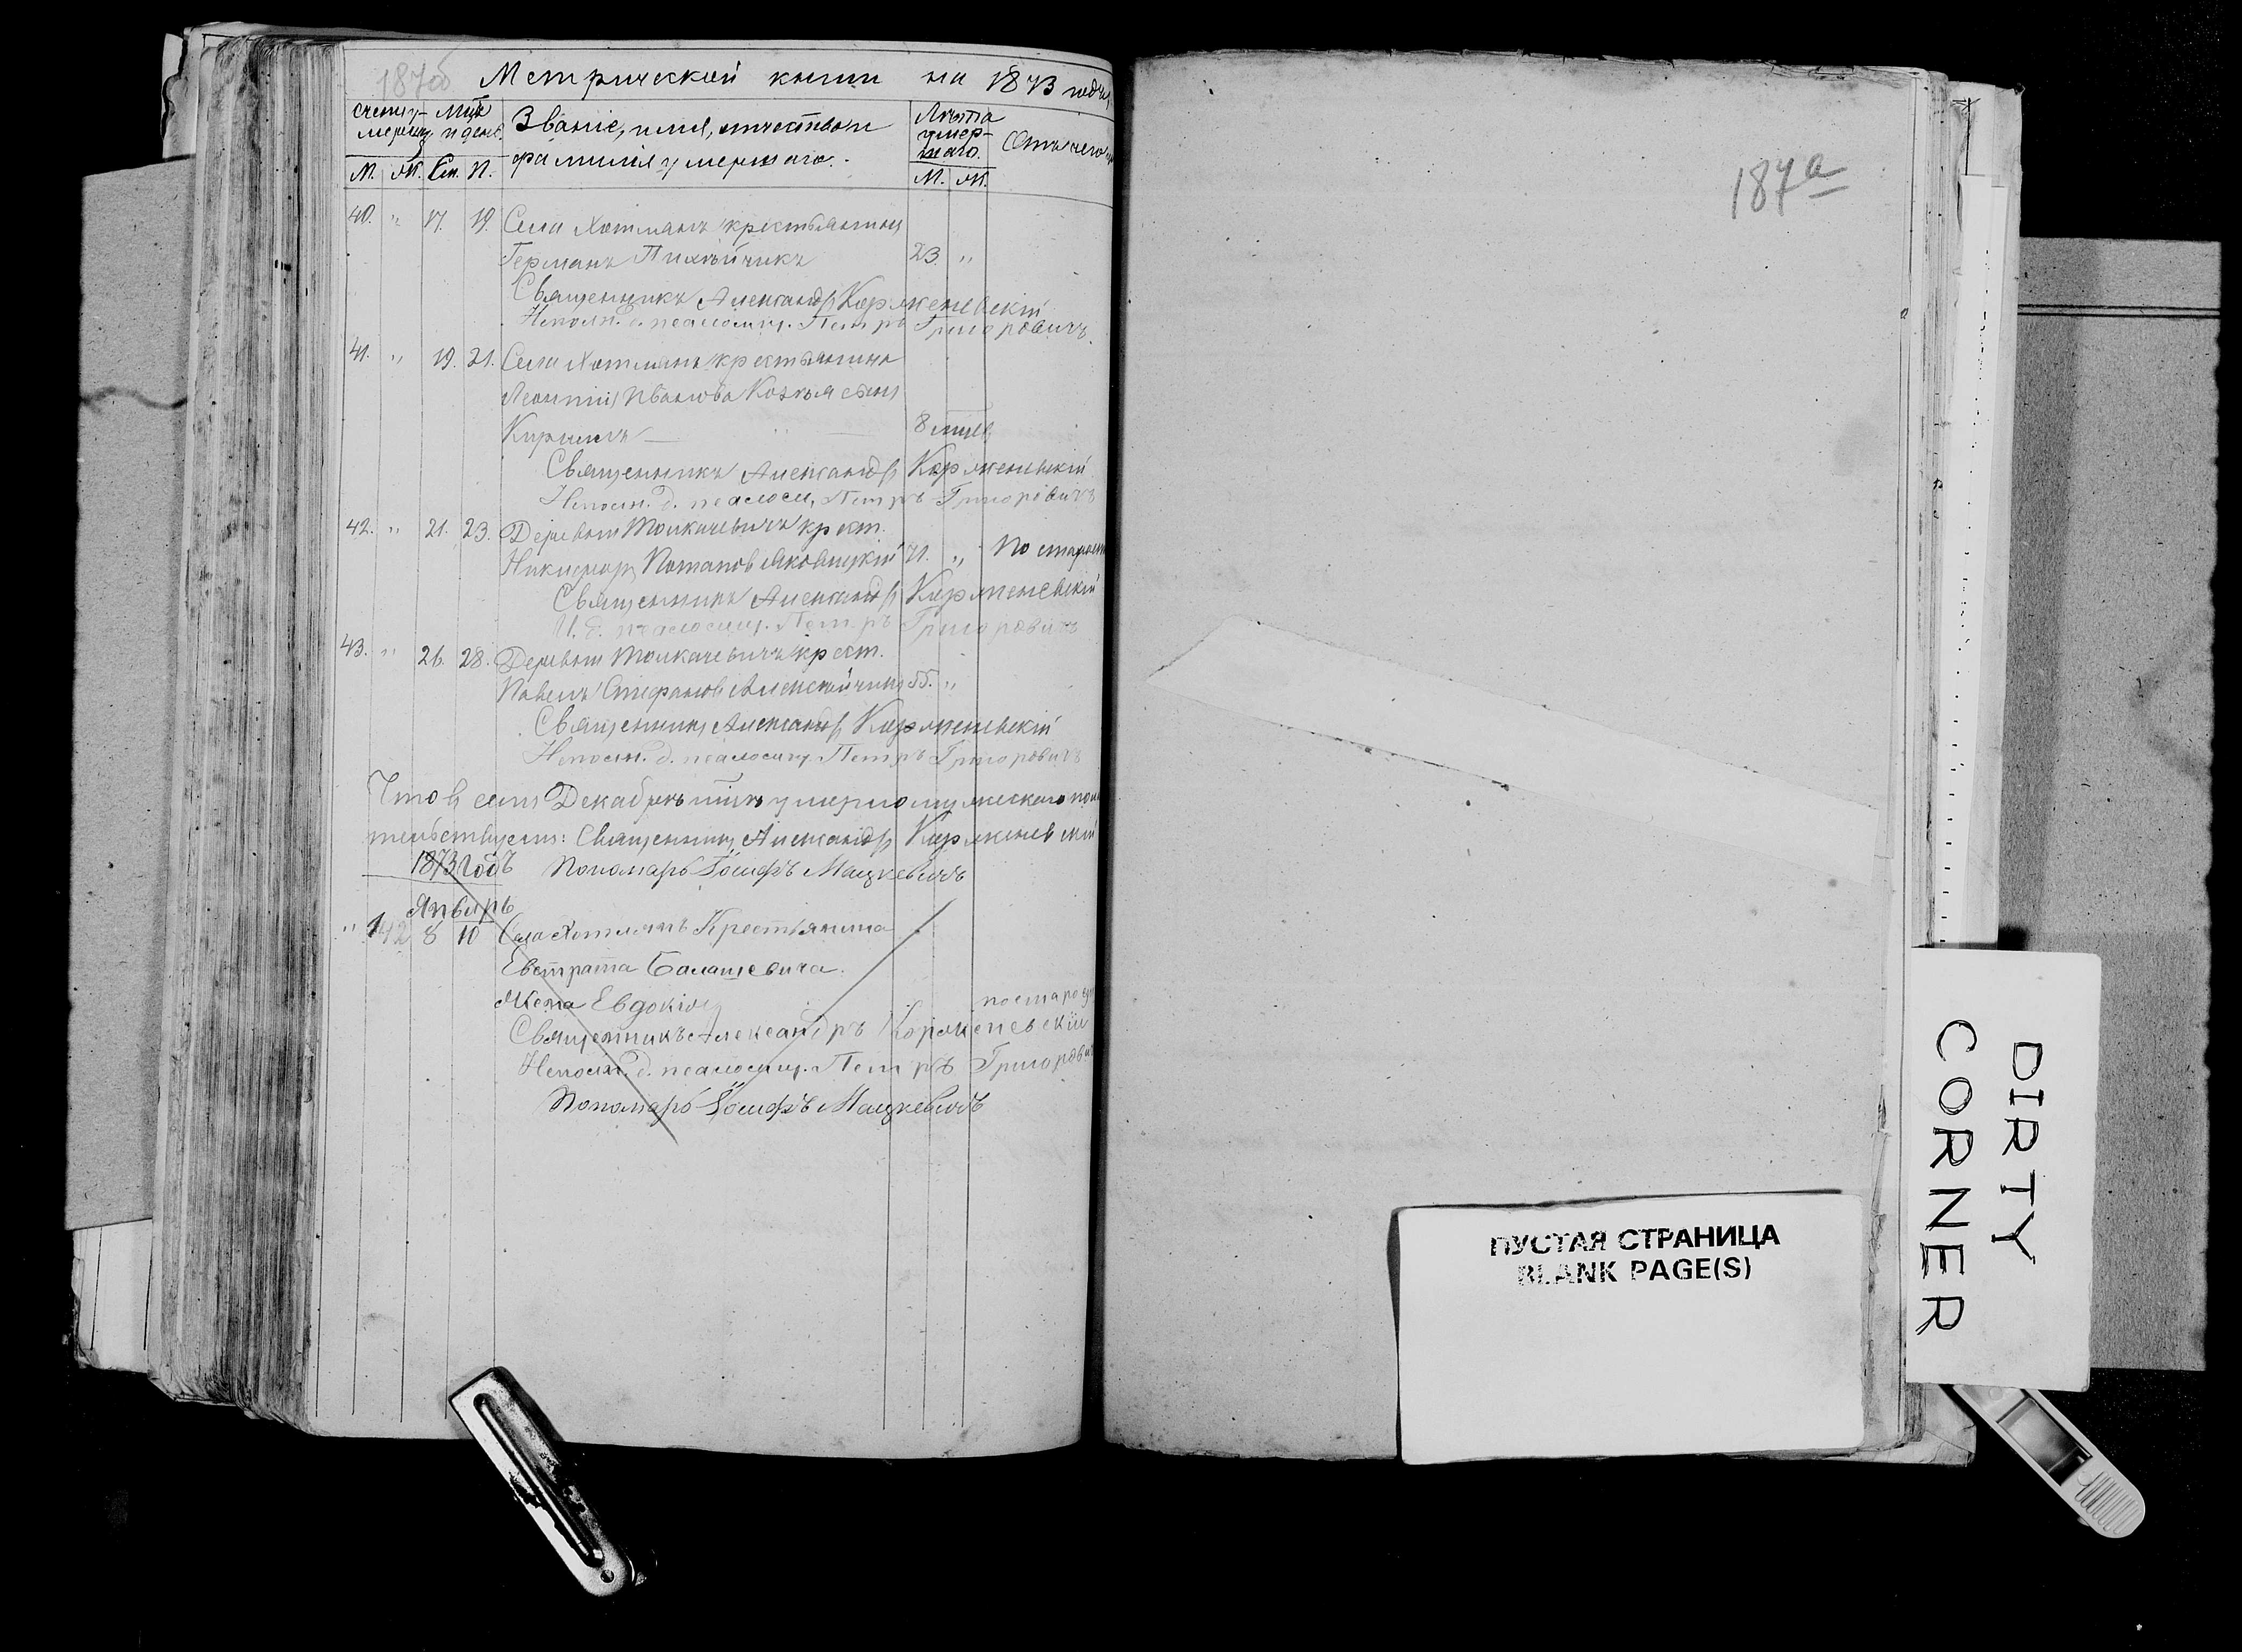 187об
Метрической книги на 1873 годъ,
Счетъ умерш.
Мцъ и день.
Званіе, имя, отчество и фамилія умершаго.
Лѣта умершаго.
Отъ чего
М. Ж. См. П.
М. Ж.
40. " 17. 19. Села Хотлянъ крестьянинъ
Германъ Пихнѣйчикъ 23. "
Священникъ Александръ Корженевскій
Исполн. д. псаломщ. Петръ Григоровичъ.
41. " 19. 21. Села Хотлянъ крестьянина
Леонтія Иванова сынъ
Кирилъ 8 мцев.
Священникъ Александръ Корженевскій
Исполн. д. псалом. Петръ Григоровичъ
42. " 21. 23. Деревни Толкачевичъ крест.
Никифоръ Потаповъ Яковицкій 71. " По старости
Священникъ Александръ Корженевскій
И. д. псаломщ. Петръ Григоровичъ
43. " 26. 28. Деревни Толкачевичъ крест.
Павелъ Стефановъ Алексѣйчикъ 55. "
Священникъ Александръ Корженевскій
Исполн. д. псаломщ. Петръ Григоровичъ
Что въ семъ Декабрѣ умерло мужескаго
тельствуемъ: Священникъ Александръ Корженевскій
1873 Годъ Пономарь Іосифъ Мацкевичъ
Январь
" 1 42 8 10 Села Хотлянъ Крестьянина
Евстрата Балашевича
Жена Евдокія по старо
Священникъ Александръ Корженевскій
Исполн. д. псаломщ. Петръ Григорович
Пономарь Іосифъ Мацкевичъ
187а
ПУСТАЯ СТРАНИЦА
BLANK PAGE(S)
DIRTY
CORNER